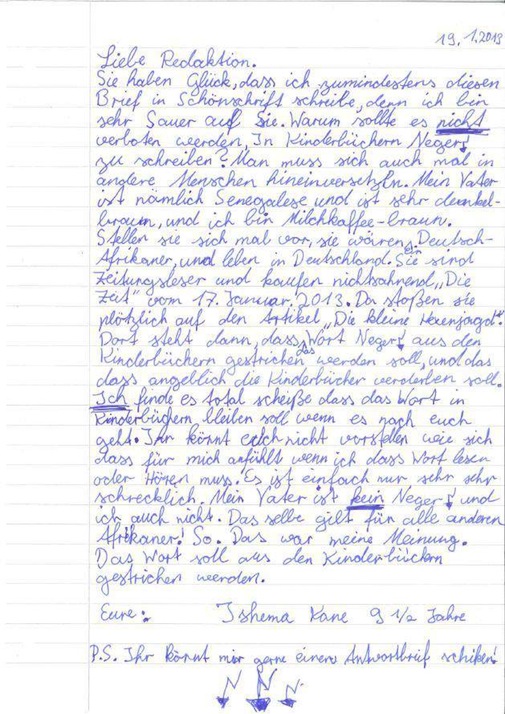 19.1.2013
Liebe Redaktion.
Sie haben Glück, dass ich zumindestens diesen
Brief in Schönschrift schreibe, denn ich bin
sehr Sauer auf Sie. Warum sollte es nicht
verboten werden, In Kinderbüchern Neger
zu schreiben? Man muss sich auch mal in
andere Menschen hineinversetzten. Mein Vater
ist nämlich Senegalese und ist sehr dunkel-
braun, und ich bin Milchkaffee-braun.
Stellen sie sich mal vor, sie wären Deutsch-
Afrikaner, und leben in Deutschland. Sie sind
Zeitungsleser und kaufen nichtsahnend „Die
Zeit" vom 17. Januar. 2013. Da stoßen sie
plötzlich auf den Artikel „Die kleine Hexenjagd".
Dort steht dann, dass das Wort Neger aus den
Kinderbüchern gestrichen werden soll, und das
dass angeblich die Kinderbücher verderben soll.
Ich finde es total scheiße dass das Wort in
Kinderbüchern bleiben soll wenn es nach euch
geht. Ihr könnt euch nicht vorstellen wie sich
dass für mich anfühlt wenn ich dass Wort lesen
oder Hören muss. Es ist einfach nur sehr sehr
schrecklich. Mein Vater ist kein Neger und
ich auch nicht. Das selbe gilt für alle anderen
Afrikaner! So. Das war meine Meinung.
Das Wort soll aus den Kinderbüchern
gestrichen werden.
Eure: Ishema Kane 9 1/2 Jahre
P.S. Ihr könnt mir gerne einene Antwortbrief schiken!